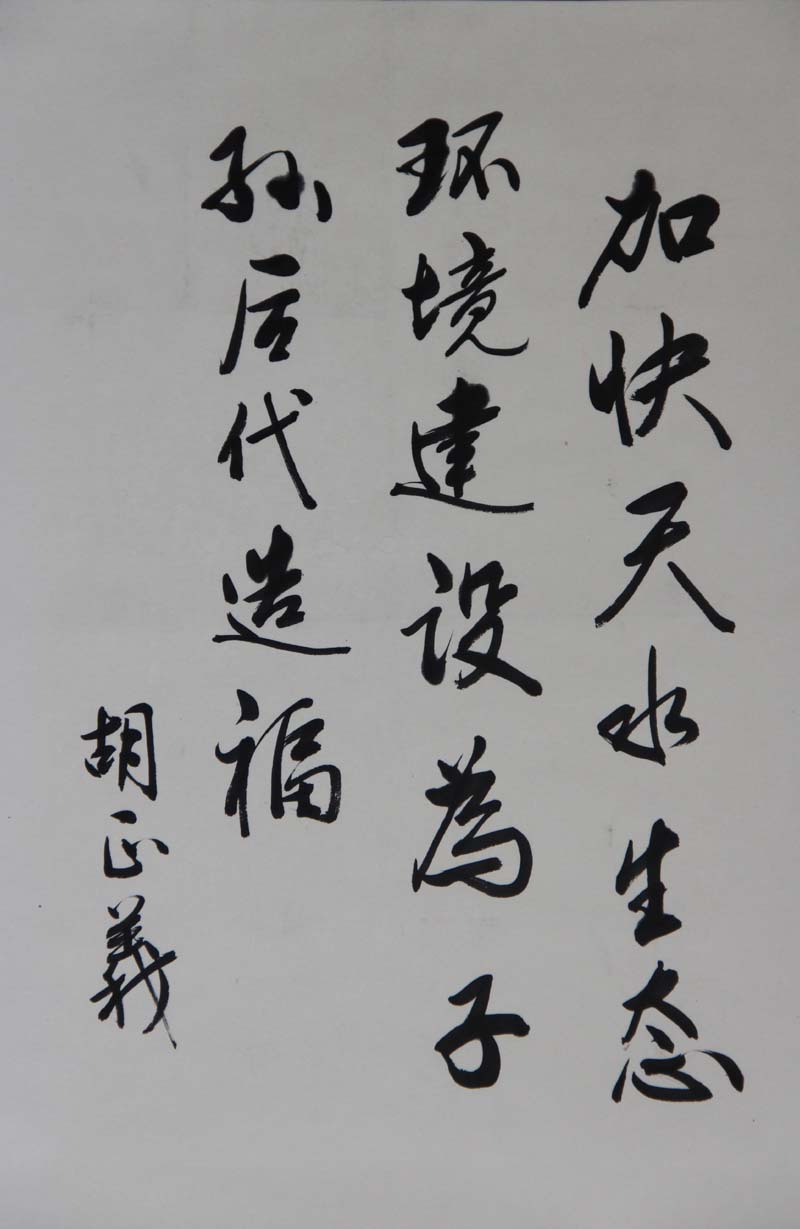 加快天水生态
环境建设為子
孙后代造福
胡正義